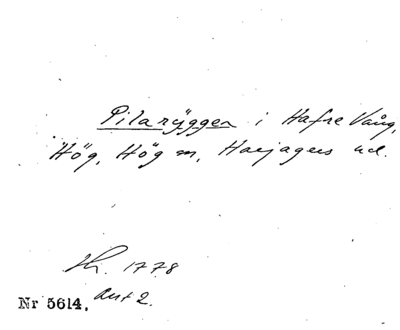 Pilarÿggen i Hafre Vång,
Hög, Hög m, Harjagers hd.
1778
Nr 5614, akt 2.